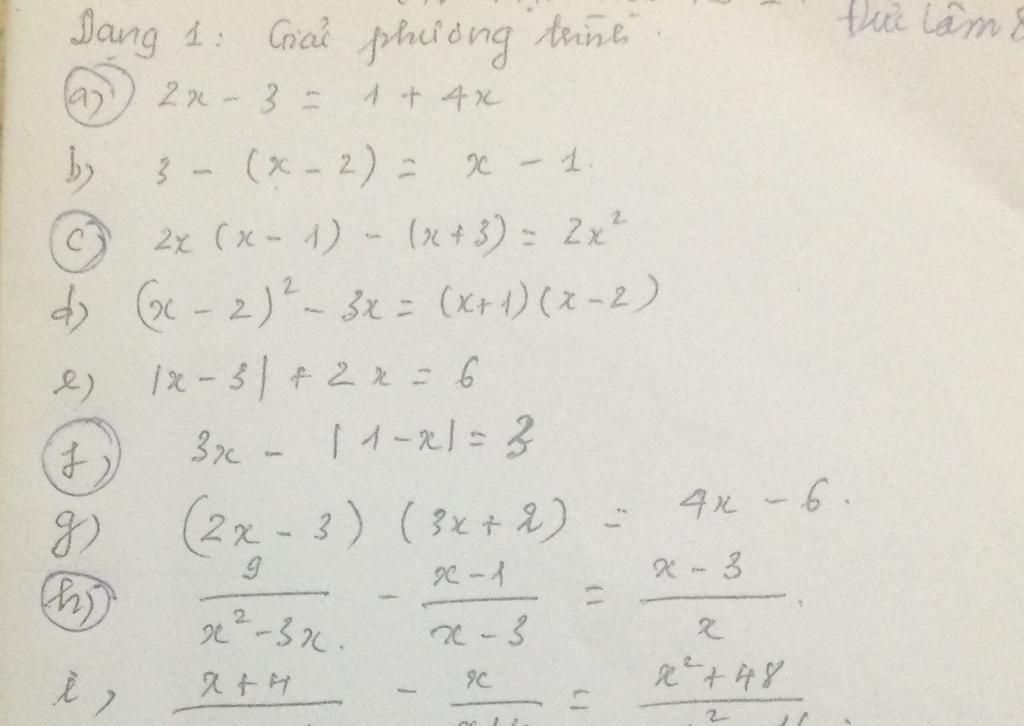 Dạng 1: Giải phương trình
Đức Lâm 8
a) 2x - 3 = 1 + 4x
b) 3 - (x - 2) = x - 1.
c) 2x (x - 1) - (x+3) = 2x²
d) (x - 2)² - 3x = (x+1)(x-2)
e) |x - 3| + 2x = 6
f) 3x - |1-x| = 3
g) (2x - 3) (3x + 2) = 4x - 6.
h) 9/(x² - 3x) - (x-1)/(x-3) = (x-3)/x.
i, (x+4)/ - x/ = (x²+48)/